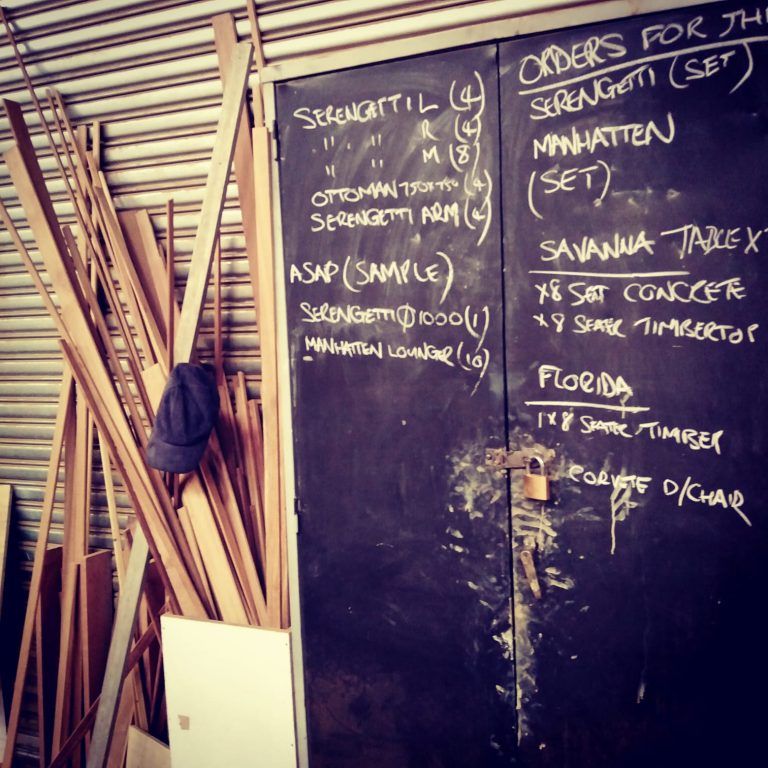 SERENGETTI L (4)
" " R (4)
" " M (8)
OTTOMAN 750X750 (4)
SERENGETTI ARM (4)
ASAP (SAMPLE)
SERENGETTI Ø 1000 (1)
MANHATTEN LOUNGER (10)
ORDERS FOR
SERENGETTI (SET)
MANHATTEN
(SET)
SAVANNA TABLE X
X8 SEAT CONCRETE
X8 SEATER TIMBERTOP
FLORIDA
1X8 SEATER TIMBER
D/CHAIR